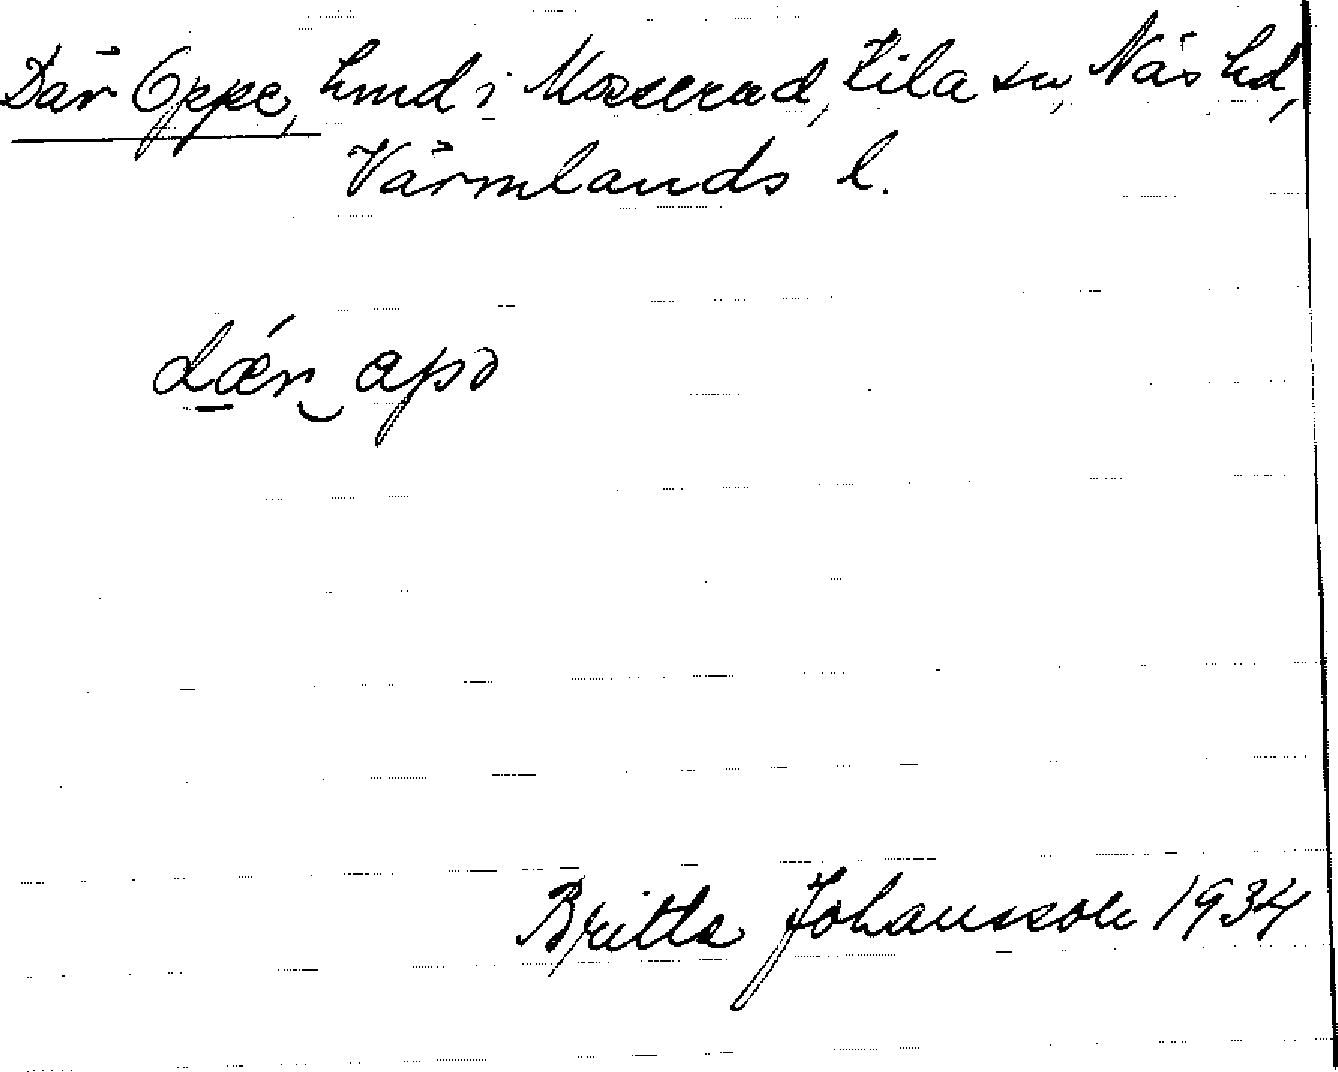 Där Oppe, hmd i Mosserud, Kila sn, Näs hd,
Värmlands l.
dǽr apɔ
Britta Johansson 1934